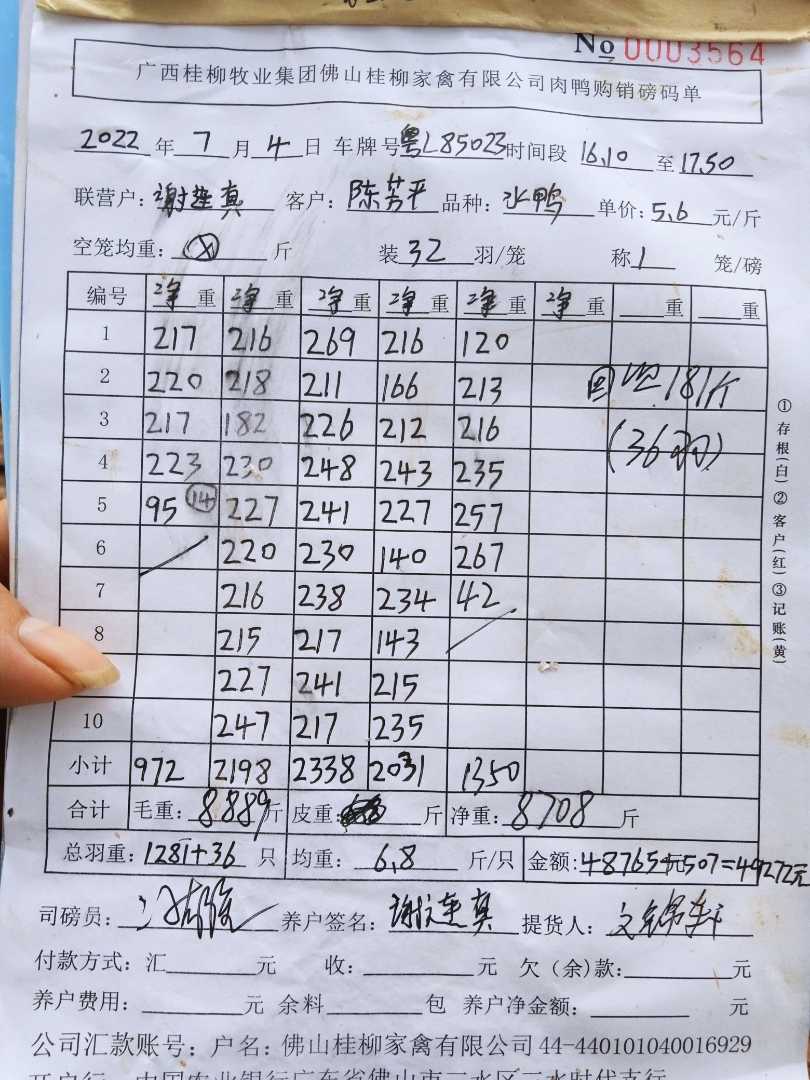 No 0003564
广西桂柳牧业集团佛山桂柳家禽有限公司肉鸭购销磅码单
2022 年 7 月 4 日 车牌号粤L85023 时间段 16.10 至 17.50
联营户: 谢莲真 客户: 陈芳平 品种: 水鸭 单价: 5.6 元/斤
空笼均重: 斤 装 32 羽/笼 称 1 笼/磅
编号 净重 净重 净重 净重 净重 净重 重 重
1 217 216 269 216 120
2 220 218 211 166 213 181斤
3 217 182 226 212 216 (36羽)
4 223 230 248 243 235
5 95 14 227 241 227 257
6 220 230 140 267
7 216 238 234 42
8 215 217 143
227 241 215
10 247 217 235
小计 972 2198 2338 2031 1350
合计 毛重: 8889 斤 皮重: 斤 净重: 8708 斤
总羽重: 1281+36 只 均重: 6.8 斤/只 金额: 48765元+507=49272元
司磅员: 养户签名: 提货人:
付款方式: 汇 元 收: 元 欠(余)款: 元
养户费用: 元 余料 包 养户净金额: 元
公司汇款账号: 户名: 佛山桂柳家禽有限公司 44-440101040016929
开户行: 中国农业银行广东省佛山市三水区三水时代支行
①存根(白)②客户(红)③记账(黄)